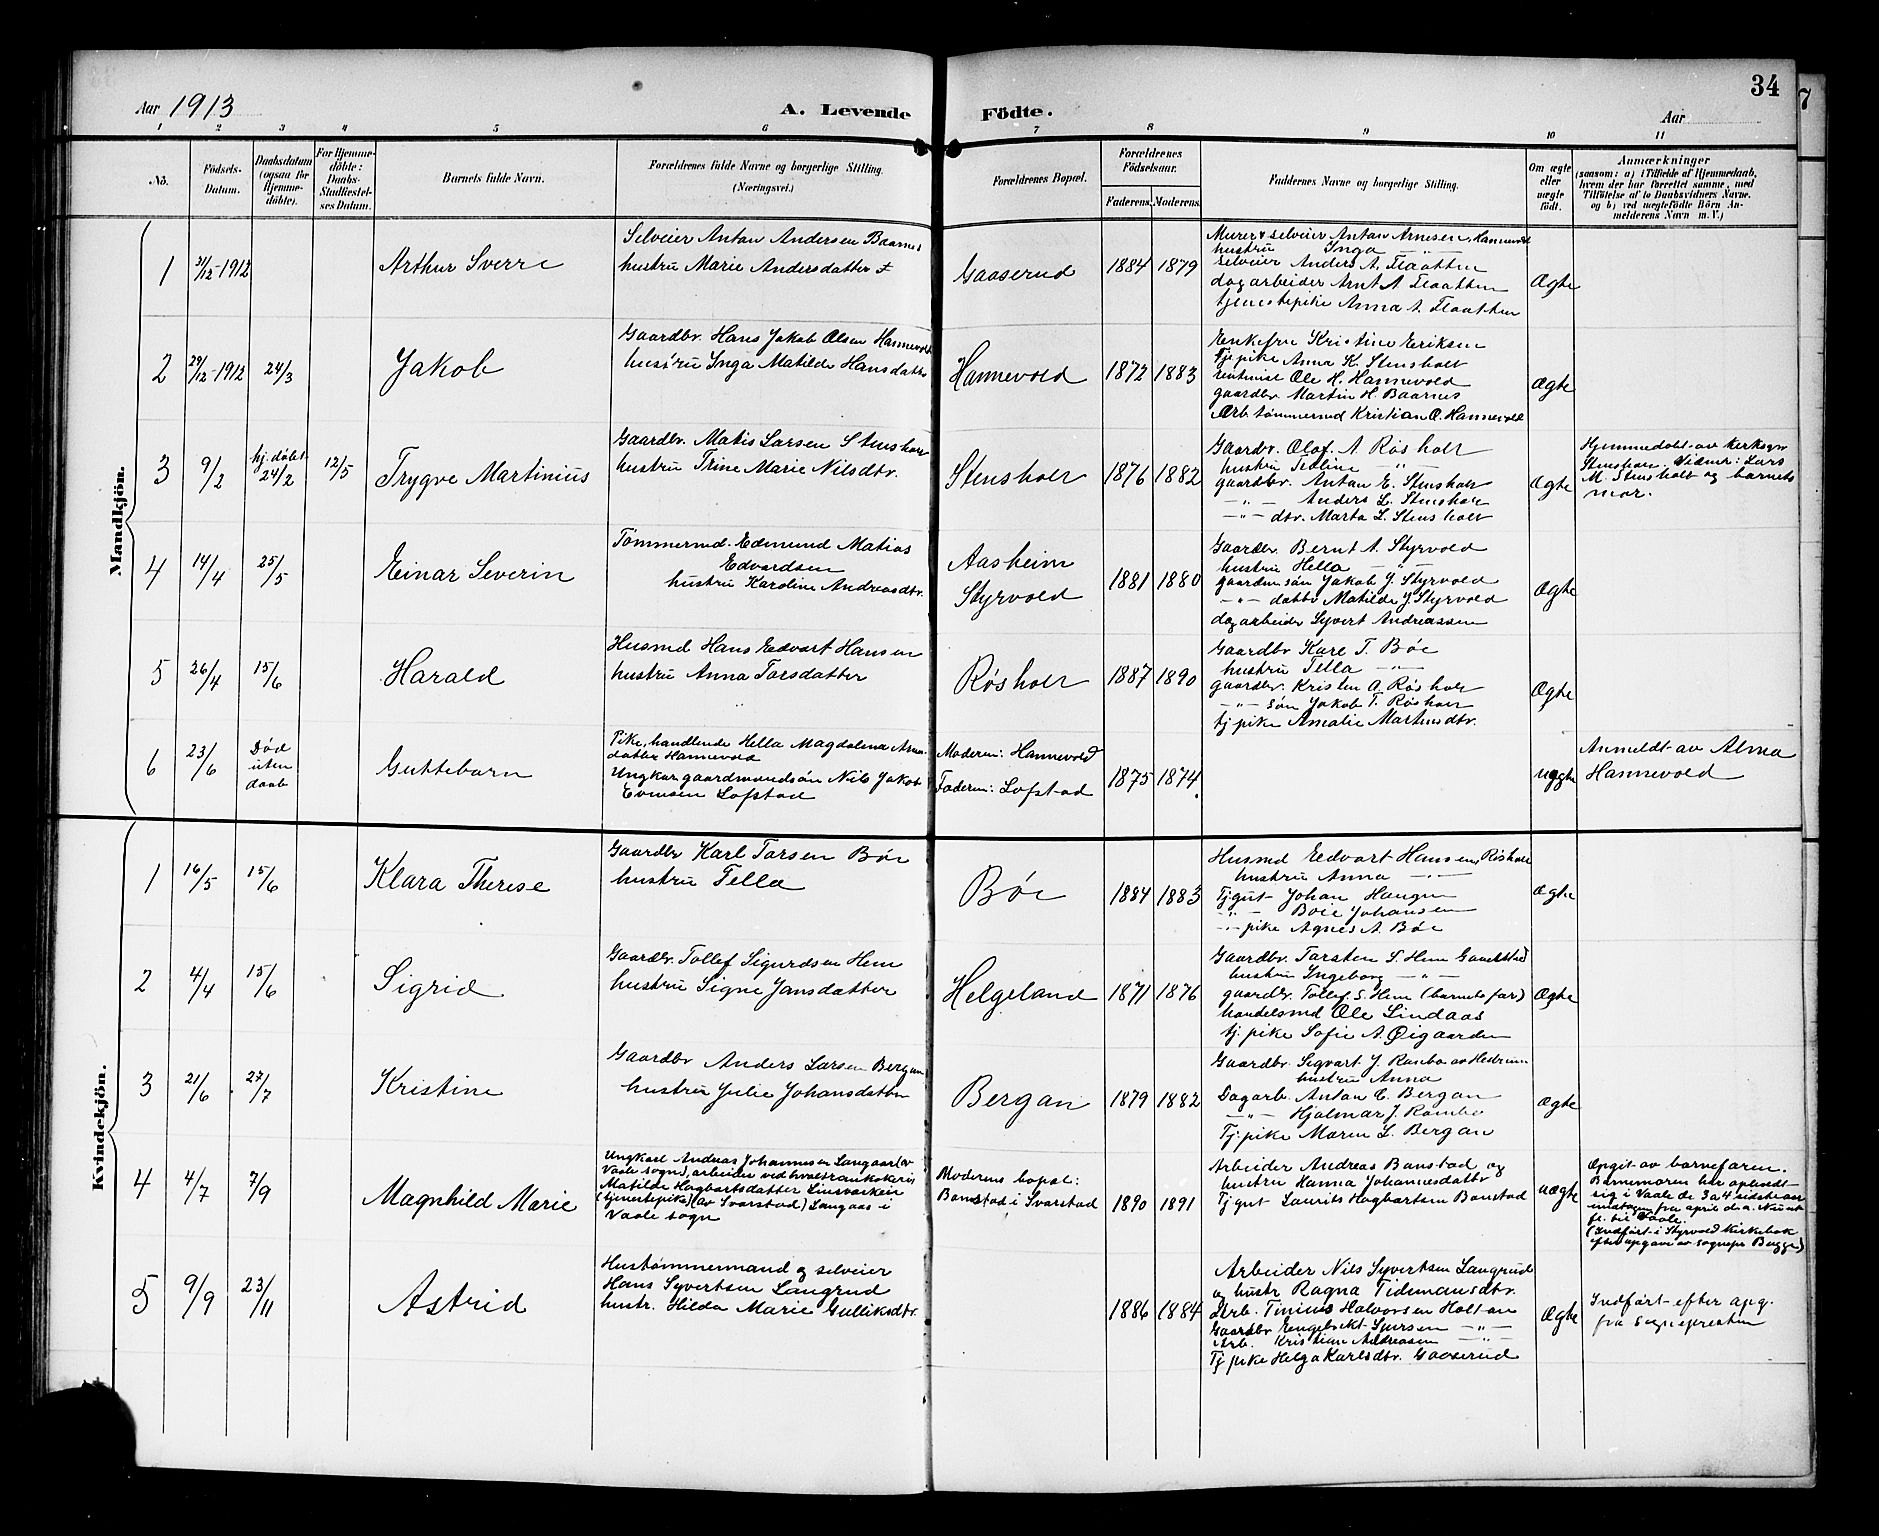 34
Aar 1913
A. Levende Födte.
Aar
1 2 3 4 5 6 7 8 9 10 11
No.
Födsels-
Datum.
Daabsdatum
(ogsaa for
Hjemme-
döbte).
For Hjemme-
döbte:
Daabs-
Stadfæstel-
ses Datum.
Barnets fulde Navn.
Forældrenes fulde Navne og borgerlige Stilling.
(Næringsvei.)
Forældrenes Bopæl.
Forældrenes
Födselsaar.
Faderens. Moderens.
Faddernes Navne og borgerlige Stilling.
Om ægte
eller
uægte
födt.
Anmærkninger
(saasom: a) i Tilfælde af Hjemmedaab,
hvem der har forrettet samme, med
Tilföielse af to Daabsvidners Navne,
og b) ved uægtefödte Börn An-
melderens Navn m. V.)
Mandkjön.
1 31/12-1912
Arthur Sverre
Selveier Anton Andersen Baarnes
hustru Marie Andersdatter
Gaaserud
1884 1879
Murer & selveier Anton Arnesen, Hannevold
hustru Inga —"—
selveier Anders A. Flaatten
dagarbeider Arnt A Flaatten
tjenestepike Anna A. Flaatten
Ægte
2 29/12-1912 24/3
Jakob
Gaardbr. Hans Jakob Olsen Hannevold
hustru Inga Matilde Hansdatter
Hannevold
1872 1883
Enkefru Kristine Eriksen
Tj.pike Anna K. Stensholt
rentenist Ole H. Hannevold
gaardbr Martin H. Baarnes
Arb. tømmermd Kristian O. Hannevold
Ægte
3 9/2 hj.døbt 24/2 12/5
Trygve Martinius
Gaardbr. Matis Larsen Stensholt
hustru Trine Marie Nilsdtr.
Stensholt
1876 1882
Gaardbr. Olaf A. Røsholt
hustru Sedline —"—
gaardbr. Anton E. Stensholt
—"— Anders L. Stensholt
—"— dtr. Marta L. Stensholt
Ægte
Hjemmedøbt av kirkesgr
Stensholt. Vidner: Lars
M. Stensholt og barnets
mor.
4 14/4 25/5
Einar Severin
Tømmermd. Edmund Matias
Edvardsen
hustru Karoline Andreasdtr.
Aasheim
Styrvold
1881 1880
Gaardbr. Bernt A. Styrvold
hustru Hella —"—
gaardm.søn Jakob J. Styrvold
—"— datter Matilde J. Styrvold
dagarbeider Syvert Andreassen
Ægte
5 26/4 15/6
Harald
Husmd Hans Edvart Hansen
hustru Anna Torsdatter
Røsholt
1887 1890
Gaardbr Karl T. Bøe
hustru Tella —"—
gaardbr. Kristen A. Røsholt
—"— søn Jakob T. Røsholt
tj.pike Amalie Martinsdtr.
Ægte
6 23/6 Død
uten
daab
Guttebarn
Pike, handlende Hella Magdalena Arnts-
datter Hannevold
Ungkar gaardmandsøn Nils Jakob
Evensen Lofstad
Moderen: Hannevold
Faderen: Lofstad
1875 1874
uægte
Anmeldt av Alma
Hannevold
Kvindekjön.
1 16/5 15/6
Klara Therese
Gaardbr Karl Torsen Bøe
hustru Tella
Bøe
1884 1883
Husmd Edvart Hansen, Røsholt
hustru Anna —"—
Tj.gut Johan Haugen
—"— Boie Johansen
—"— pike Agnes A. Bøe
Ægte
2 4/4 15/6
Sigrid
Gaardbr. Tollef Sigurdsen Hem
hustru Signe Jansdatter
Helgeland
1871 1876
Gaardbr. Torsten S. Hem
hustru Ingeborg —"—
gaardbr. Tollef S. Hem (barnets far)
handelsmd Ole Lindaas
tj.pike Sofie A. Øigaarden
Ægte
3 21/6 27/7
Kristine
Gaardbr Anders Larsen Bergan
hustru Julie Johansdatter
Bergan
1879 1882
Gaardbr. Sigvart J. Rambo av Hedrum
hustru Anna
Dagarb. Anton C. Bergan
—"— Hjalmar J. Rambo
Tj.pike Maren L. Bergan
Ægte
4 4/7 7/9
Magnhild Marie
Ungkarl Andreas Johannesen Langaas (av
Vaale sogn), arbeider ved hvaltrankokeri
Matilde Hagbartsdatter
(tjenestepike) (av Svarstad) Langaas i
Vaale sogn
Moderens bopæl:
Banstad i Svarstad
1890 1891
Arbeider Andreas Banstad og
hustru Hanna Johannesdatter
Tj.gut Laurits Hagbartsen Banstad
uægte
Opgit av barnefaren.
Barnemoren har opholdt
sig i Vaale de 3 a 4 sidste aar
undtagen fra april d.a. Nu ut-
fl. til Vaale.
(Indført i Styrvold kirkebok
efter opgave av sognepr Bugge)
5 9/9 23/11
Astrid
Hustømmermand og selveier
Hans Syvertsen Langrud
hustr. Hilda Marie Gulliksdtr.
1886 1884
Arbeider Nils Syvertsen Langrud
og hustr Ragna Tidemansdtr.
Arb. Tinius Halvorsen Holtan
Gaardbr Engebrekt Syversen —"—
Arb. Kristian Andreasen —"—
Tj.pike Helga Karlsdtr. Gaaserud
Ægte
Indført efter opg.
fra sognepresten
7